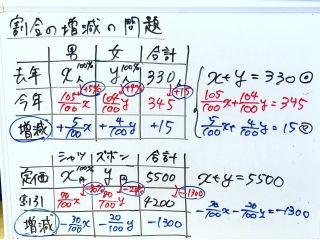 割合の増減の問題
男 女 合計
去年 x人 100% y人 100% 330人
+5% +4% +15
今年 105/100 x 104/100 y 345
増減 +5/100 x +4/100 y +15
x+y=330
105/100 x + 104/100 y = 345
5/100 x + 4/100 y = 15
シャツ ズボン 合計
定価 x円 100% y円 100% 5500
-30% -20% -1300
割引 70/100 x 80/100 y 4200
増減 -30/100 x -20/100 y -1300
x+y=5500
-30/100 x - 20/100 y = -1300